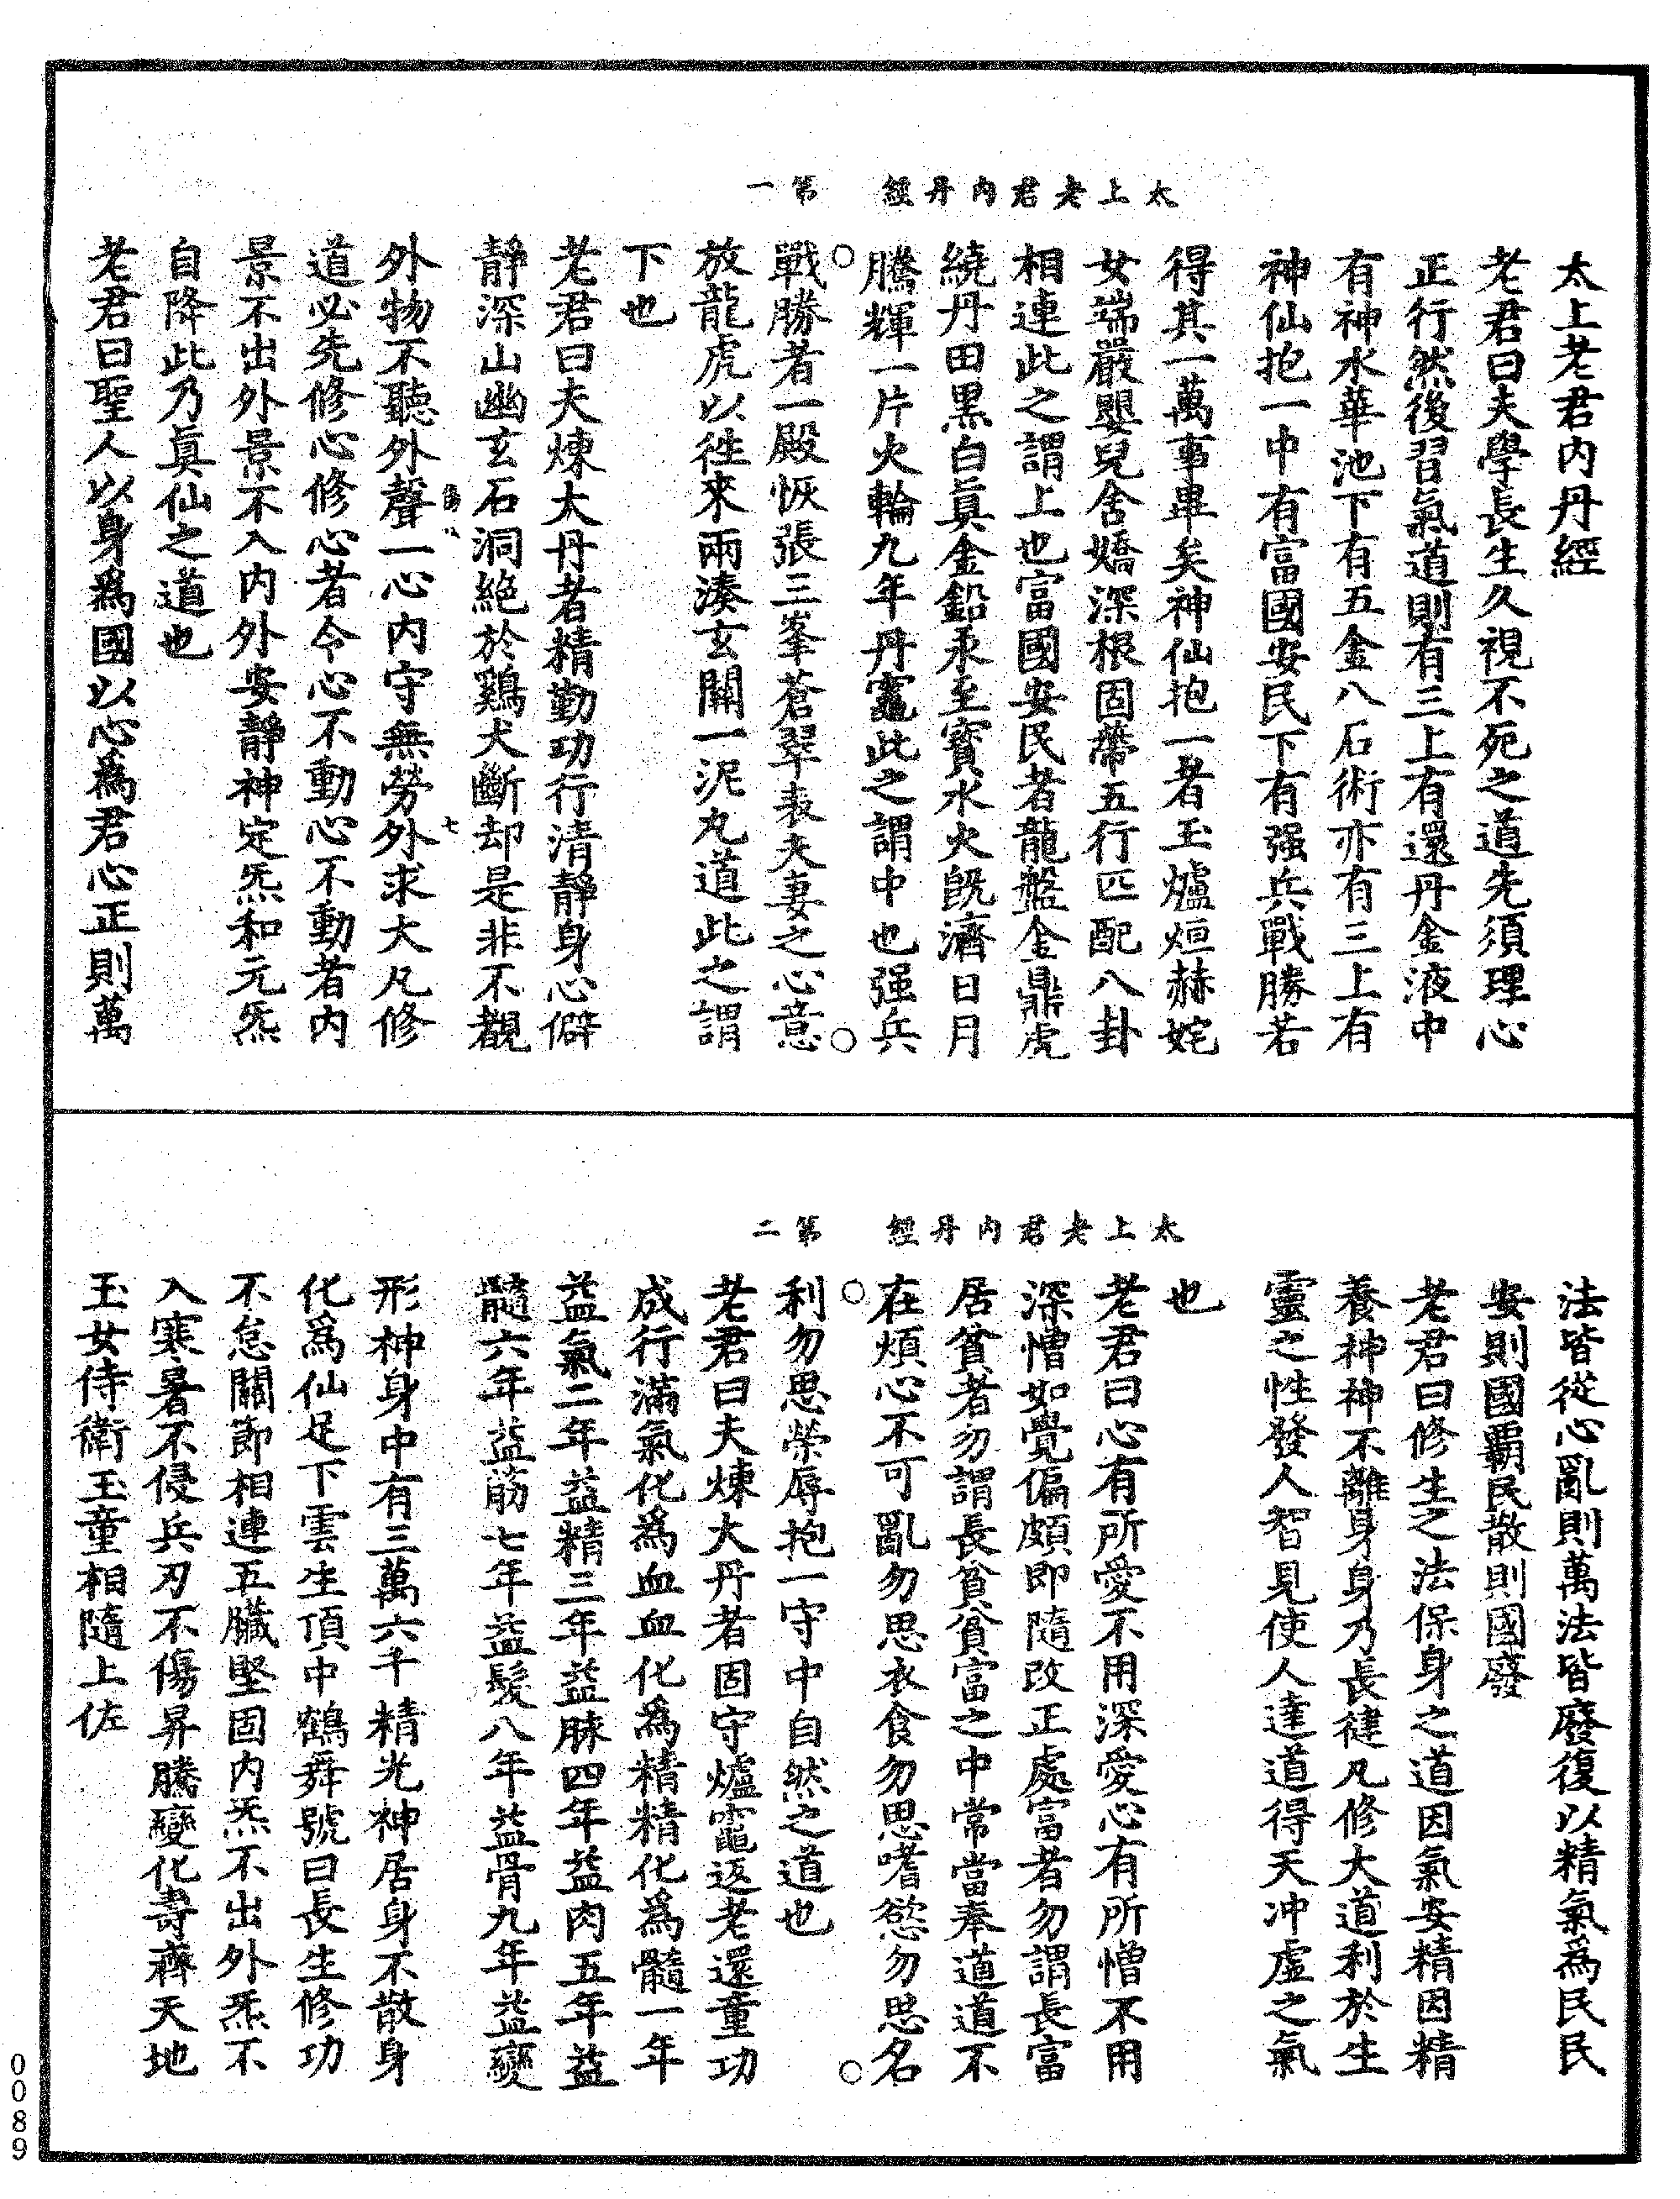 太上老君内丹經
老君曰夫學長生久視不死之道先須理心
正行然後習氣道則有三上有還丹金液中
有神水華池下有五金八石術亦有三上有
神仙抱一中有富國安民下有强兵戰勝若
得其一萬事畢矣神仙抱一者玉爐烜赫姹
女端嚴嬰兒含嬌深根固蔕五行匹配八卦
相連此之謂上也富國安民者龍盤金鼎虎
繞丹田黒白眞金鉛汞至寳水火旣濟日月
騰輝一片火輪九年丹竈此之謂中也强兵
太上老君内丹經　第一
戰勝者一殿恢張三峯蒼翠表夫妻之心意
放龍虎以徃來兩湊玄關一泥丸道此之謂
下也
老君曰夫煉大丹者精勤功行清静身心僻
静深山幽玄石洞絶於鷄犬斷却是非不覩
外物不聽外聲一心内守無勞外求大凡修
道必先修心修心者令心不動心不動者内
景不出外景不入内外安静神定炁和元炁
自降此乃眞仙之道也
老君曰聖人以身爲國以心為君心正則萬
法皆從心亂則萬法皆廢復以精氣爲民民
安則國覇民散則國廢
老君曰修生之法保身之道因氣安精因精
養神神不離身身乃長徤凡修大道利於生
靈之性發人智見使人達道得天冲虚之氣
也
老君曰心有所愛不用深愛心有所憎不用
深憎如覺偏頗即隨改正處富者勿謂長富
居貧者勿謂長貧貧富之中常當奉道道不
在煩心不可亂勿思衣食勿思嗜慾勿思名
太上老君内丹經　第二
利勿思榮辱抱一守中自然之道也
老君曰夫煉大丹者固守爐竈返老還童功
成行滿氣化爲血血化爲精精化爲髓一年
益氣二年益精三年益脉四年益肉五年益
髓六年益筋七年益髮八年益骨九年益變
形神身中有三萬六千精光神居身不散身
化爲仙足下雲生頂中鶴舞號曰長生修功
不怠關節相連五臟堅固内炁不出外炁不
入寒暑不侵兵刃不傷昇騰變化壽齊天地
玉女侍衛玉童相隨上佐
0089